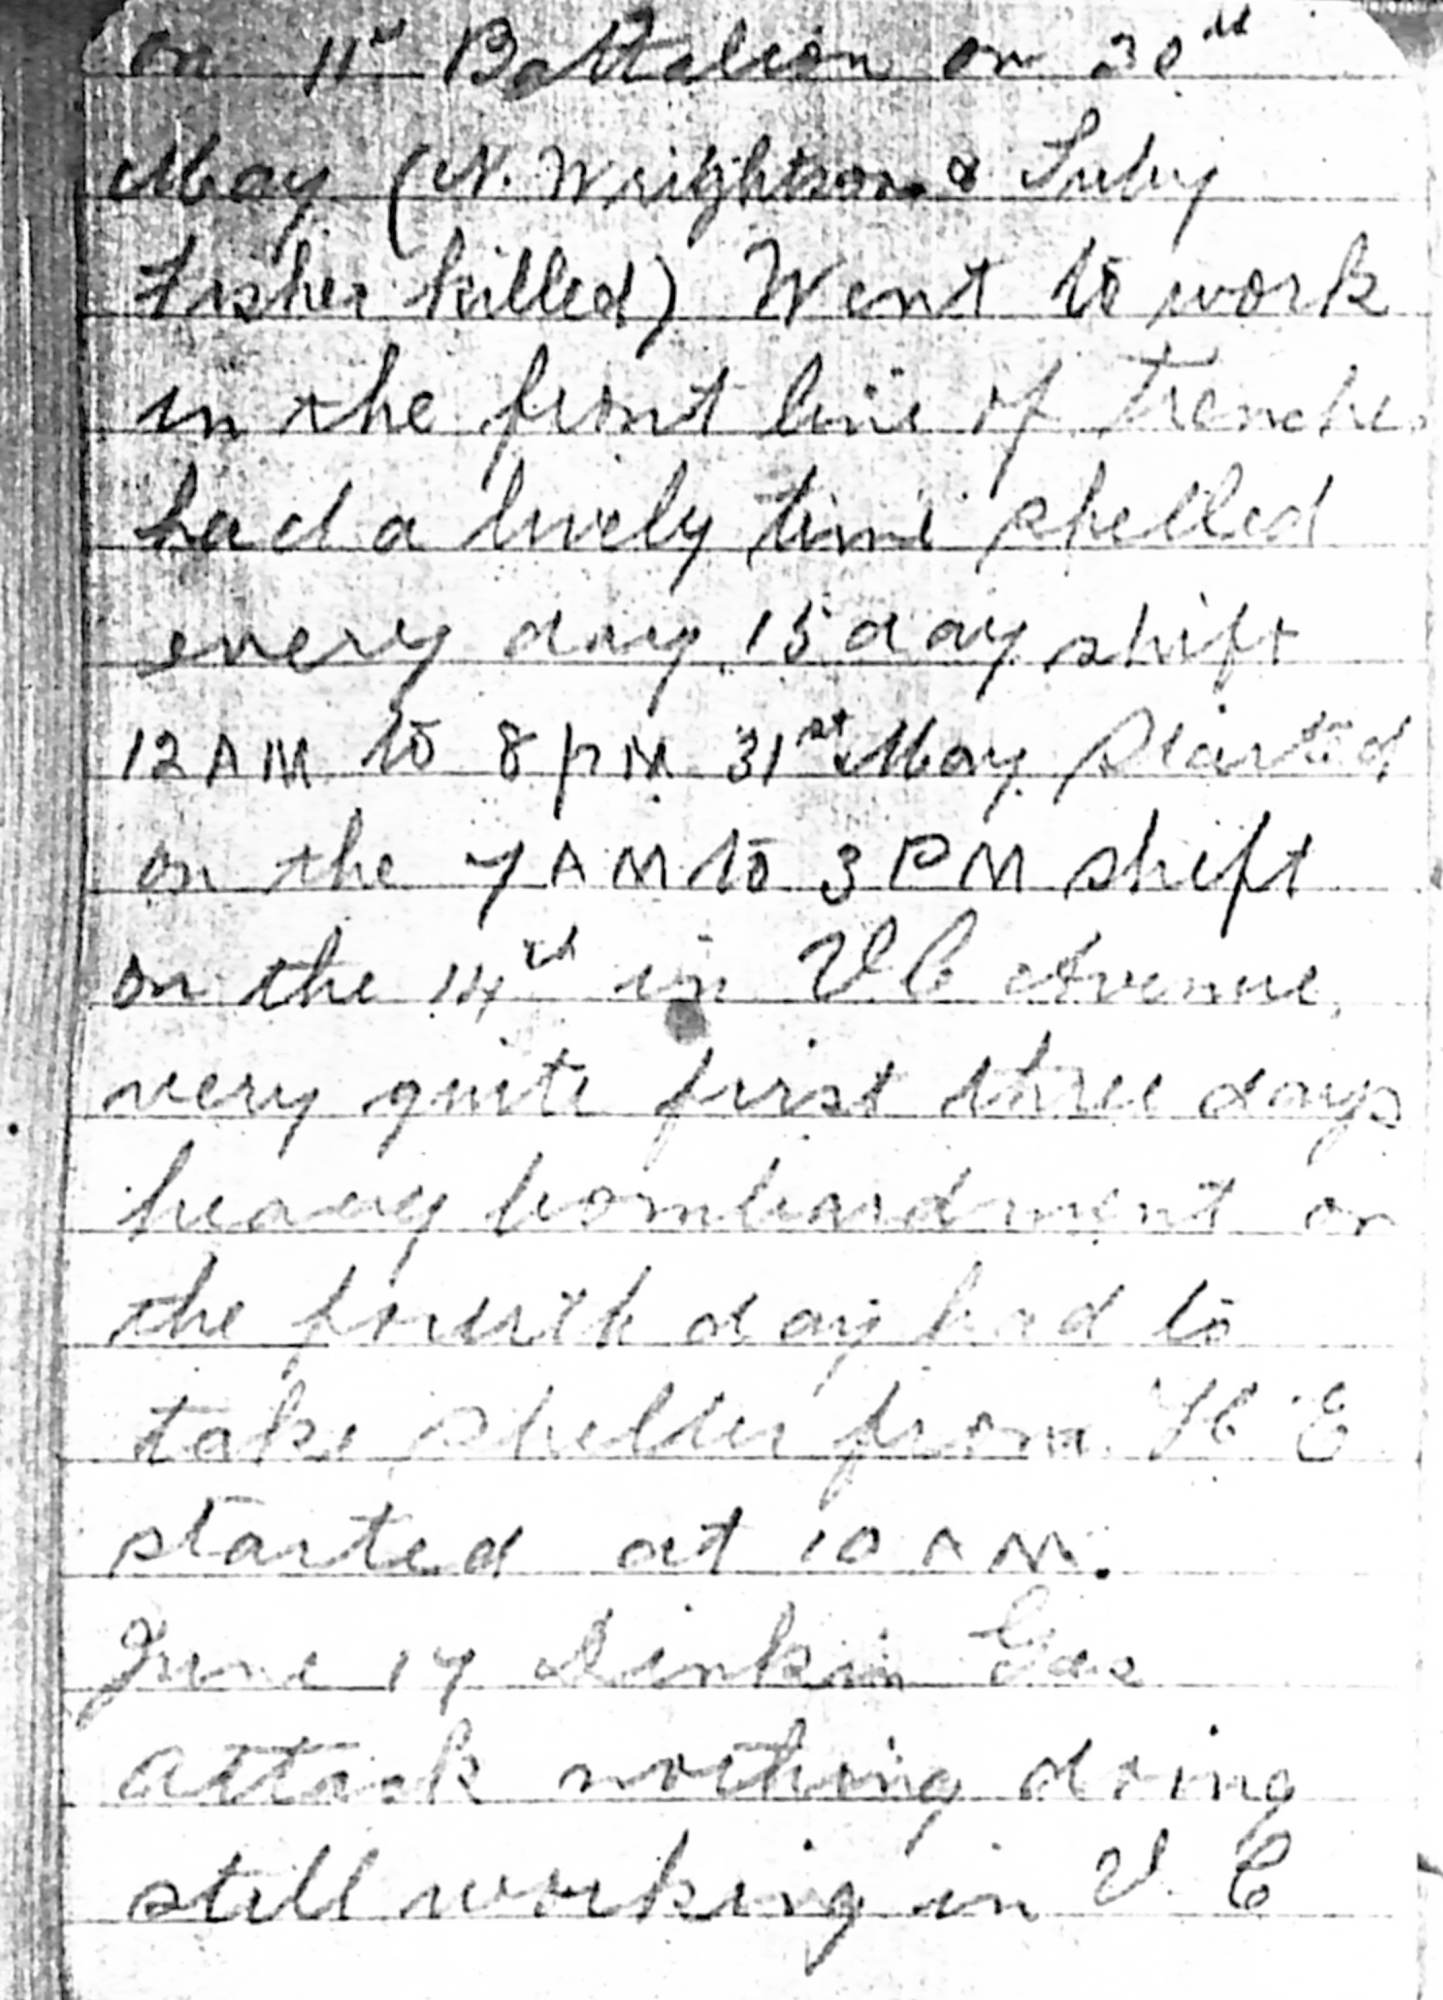 on 11th Battalion on 30th
May (N. Wrightson &
Fisher killed) Went to work
in the front line of Trenches
had a lively time shelled
every day 15 day shift
12 AM to 8 PM 31st May started
on the 7 AM to 3 PM shift
on the 14th in VC Avenue
very quite first three days
heavy bombardment on
the fourth day had to
take shelter from H E
started at 10 AM.
June 17 Gas
attack nothing doing
still working in V. C